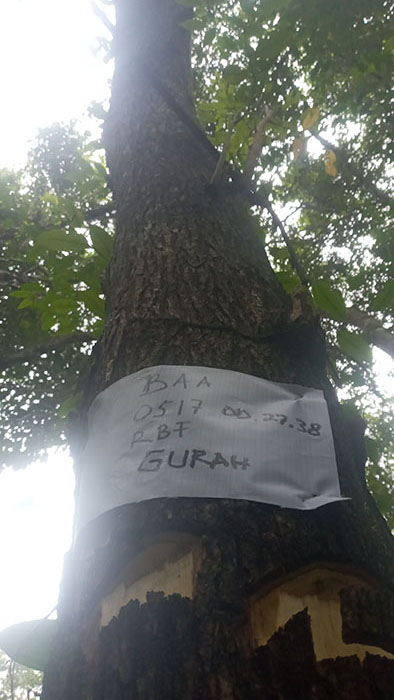 BAA
0517 DD. 27.38
RBF
GURAH